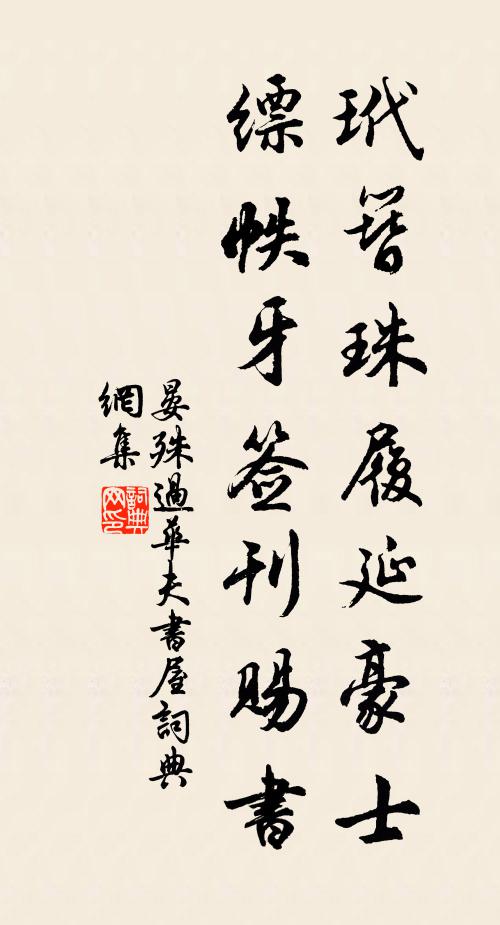 玳簪珠履延豪士
缥帙牙签刊赐書
晏殊過華夫書屋詞典
網集
詞典
网印